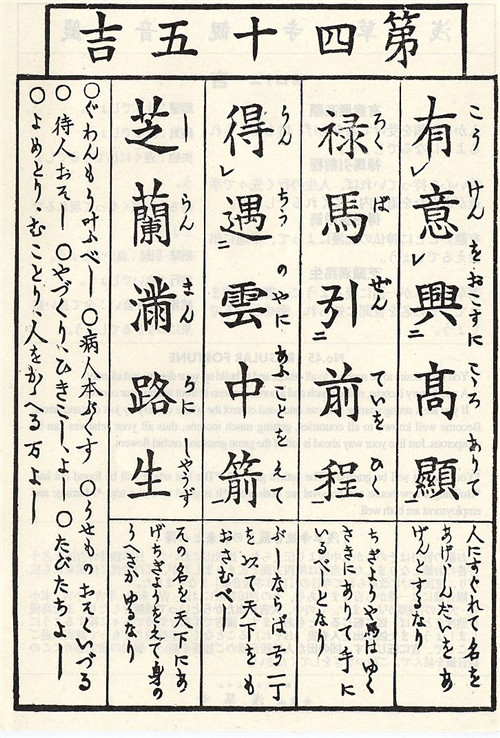 第四十五吉
有レ意レ興二髙顯
こうけんをおこすにこころあり
禄馬引二前程
ろくばせんていひ
得レ遇二雲中箭
うんちうのやにあふ をえて
芝蘭滿路生
しらん ろにしやうず
人にすぐれて名を
あげしんだいをあ
げんとするなり
ちぎようや馬はゆく
さきにありて手に
いるべしとなり
ぶしならば弓一丁
を以天下をも
おさむべし
其の名を天下にあ
げちぎようそえて身の
うへさかゆるなり
○ぐわんもう叶ふべし ○病人本ぷくす ○うせものおそくいづる
○待人おそし ○やづくりひきこしよし ○たびたちよし
○よめとりむことり人をかゝへる万よし